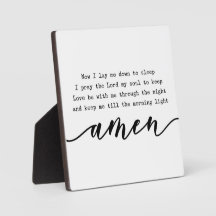 Now I lay me down to sleep
I pray the Lord my soul to keep
Love be with me through the night
and keep me till the morning light
amen